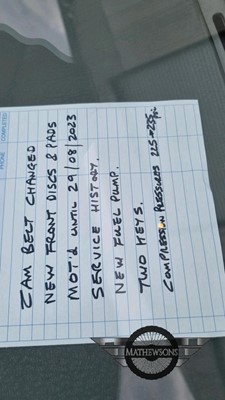 CAM BELT CHANGED
NEW FRONT DISCS & PADS
MOT'd UNTIL 29/08/2023
SERVICE HISTORY.
NEW FUEL PUMP.
TWO KEYS.
COMPRESSION PRESSURES 225-235 PSI
PHONE
COMPLETED
MATHEWSONS